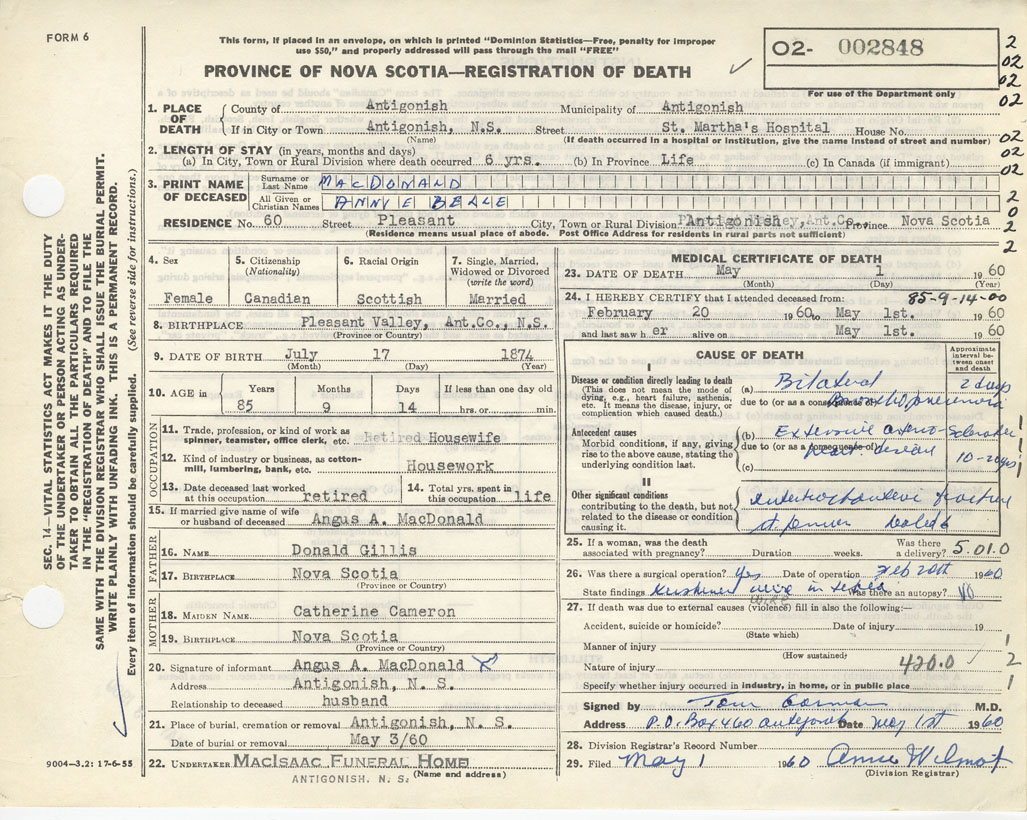 FORM 6
This form, if placed in an envelope, on which is printed "Dominion Statistics—Free, penalty for improper
use $50," and properly addressed will pass through the mail "FREE"
PROVINCE OF NOVA SCOTIA—REGISTRATION OF DEATH
O2- 002848
For use of the Department only
2
02
02
02
02
02
02
2
0
2
1. PLACE OF DEATH
County of Antigonish Municipality of Antigonish
If in City or Town Antigonish, N.S. Street St. Martha's Hospital House No.
(Name) (If death occurred in a hospital or institution, give the name instead of street and number)
2. LENGTH OF STAY (in years, months and days)
(a) In City, Town or Rural Division where death occurred 6 yrs. (b) In Province Life (c) In Canada (if immigrant)
3. PRINT NAME OF DECEASED
Surname or Last Name MACDONALD
All Given or Christian Names ANNIE BELLE
RESIDENCE No. 60 Street Pleasant City, Town or Rural Division Antigonish, Ant.Co. Province Nova Scotia
(Residence means usual place of abode. Post Office Address for residents in rural parts not sufficient)
4. Sex
Female
5. Citizenship
(Nationality)
Canadian
6. Racial Origin
Scottish
7. Single, Married,
Widowed or Divorced
(write the word)
Married
8. BIRTHPLACE Pleasant Valley, Ant.Co., N.S.
(Province or Country)
9. DATE OF BIRTH July 17 1874
(Month) (Day) (Year)
10. AGE in
Years Months Days If less than one day old
85 9 14 hrs. or min.
OCCUPATION
11. Trade, profession, or kind of work as
spinner, teamster, office clerk, etc. Retired Housewife
12. Kind of industry or business, as cotton-
mill, lumbering, bank, etc. Housework
13. Date deceased last worked
at this occupation retired
14. Total yrs. spent in
this occupation life
15. If married give name of wife
or husband of deceased Angus A. MacDonald
FATHER
16. NAME Donald Gillis
17. BIRTHPLACE Nova Scotia
(Province or Country)
MOTHER
18. MAIDEN NAME Catherine Cameron
19. BIRTHPLACE Nova Scotia
(Province or Country)
20. Signature of informant Angus A. MacDonald X
Address Antigonish, N. S.
Relationship to deceased husband
21. Place of burial, cremation or removal Antigonish, N. S.
Date of burial or removal May 3/60
22. UNDERTAKER MACISAAC FUNERAL HOME
ANTIGONISH, N. S. (Name and address)
MEDICAL CERTIFICATE OF DEATH
23. DATE OF DEATH May 1 1960
(Month) (Day) (Year)
24. I HEREBY CERTIFY that I attended deceased from: 85-9-14-00
February 20 1960 to May 1st. 1960
and last saw her alive on May 1st. 1960
CAUSE OF DEATH
Approximate
interval be-
tween onset
and death
I
Disease or condition directly leading to death
(This does not mean the mode of
dying, e.g., heart failure, asthenia,
etc. It means the disease, injury, or
complication which caused death.)
(a) Bilateral 2 days
due to (or as a consequence of) Bronchopneumonia
Antecedent causes
Morbid conditions, if any, giving
rise to the above cause, stating the
underlying condition last.
(b) Extensive
due to (or as a consequence of)
10-days
(c)
II
Other significant conditions
contributing to the death, but not
related to the disease or condition
causing it.
intertrochanteric fracture
25. If a woman, was the death
associated with pregnancy? Duration weeks. Was there
a delivery? 5.01.0
26. Was there a surgical operation? Yes Date of operation Feb 20th 1960
State findings Was there an autopsy? No
27. If death was due to external causes (violence) fill in also the following:—
Accident, suicide or homicide? Date of injury 19
(State which)
Manner of injury
(How sustained)
Nature of injury 420.0
Specify whether injury occurred in industry, in home, or in public place
1
2
1
Signed by Tom Gorman M.D.
Address P.O. Box 460 Antigonish Date May 1st 1960
28. Division Registrar's Record Number
29. Filed May 1 1960 Anna Wilmot
(Division Registrar)
SEC. 14—VITAL STATISTICS ACT MAKES IT THE DUTY
OF THE UNDERTAKER OR PERSON ACTING AS UNDER-
TAKER TO OBTAIN ALL THE PARTICULARS REQUIRED
IN THE "REGISTRATION OF DEATH" AND TO FILE THE
SAME WITH THE DIVISION REGISTRAR WHO SHALL ISSUE THE BURIAL PERMIT.
WRITE PLAINLY WITH UNFADING INK. THIS IS A PERMANENT RECORD.
Every item of information should be carefully supplied. (See reverse side for instructions.)
9004—3.2: 17-6-55